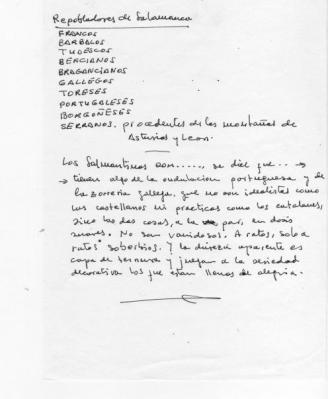 Repobladores de Salamanca
FRANCOS
BARBALOS
TUDESCOS
BERCIANOS
BRAGANCIANOS
GALLEGOS
TORESES
PORTUGALESES
BORGOÑESES
SERRANOS. procedentes de las montañas de
Asturias y Leon.
Los Salmantinos son....., se dice que...→
→ tienen algo de la ondulacion portuguesa y de
la zorreria gallega. que no son idealistas como
los castellanos ni practicos como los catalanes,
sino las dos cosas, a la par, en dosis
suaves. No son vanidosos. A ratos, solo a
ratos soberbios. Y la dureza aparente es
capa de ternura y juegan a la seriedad
decorativa los que estan llenos de alegria.